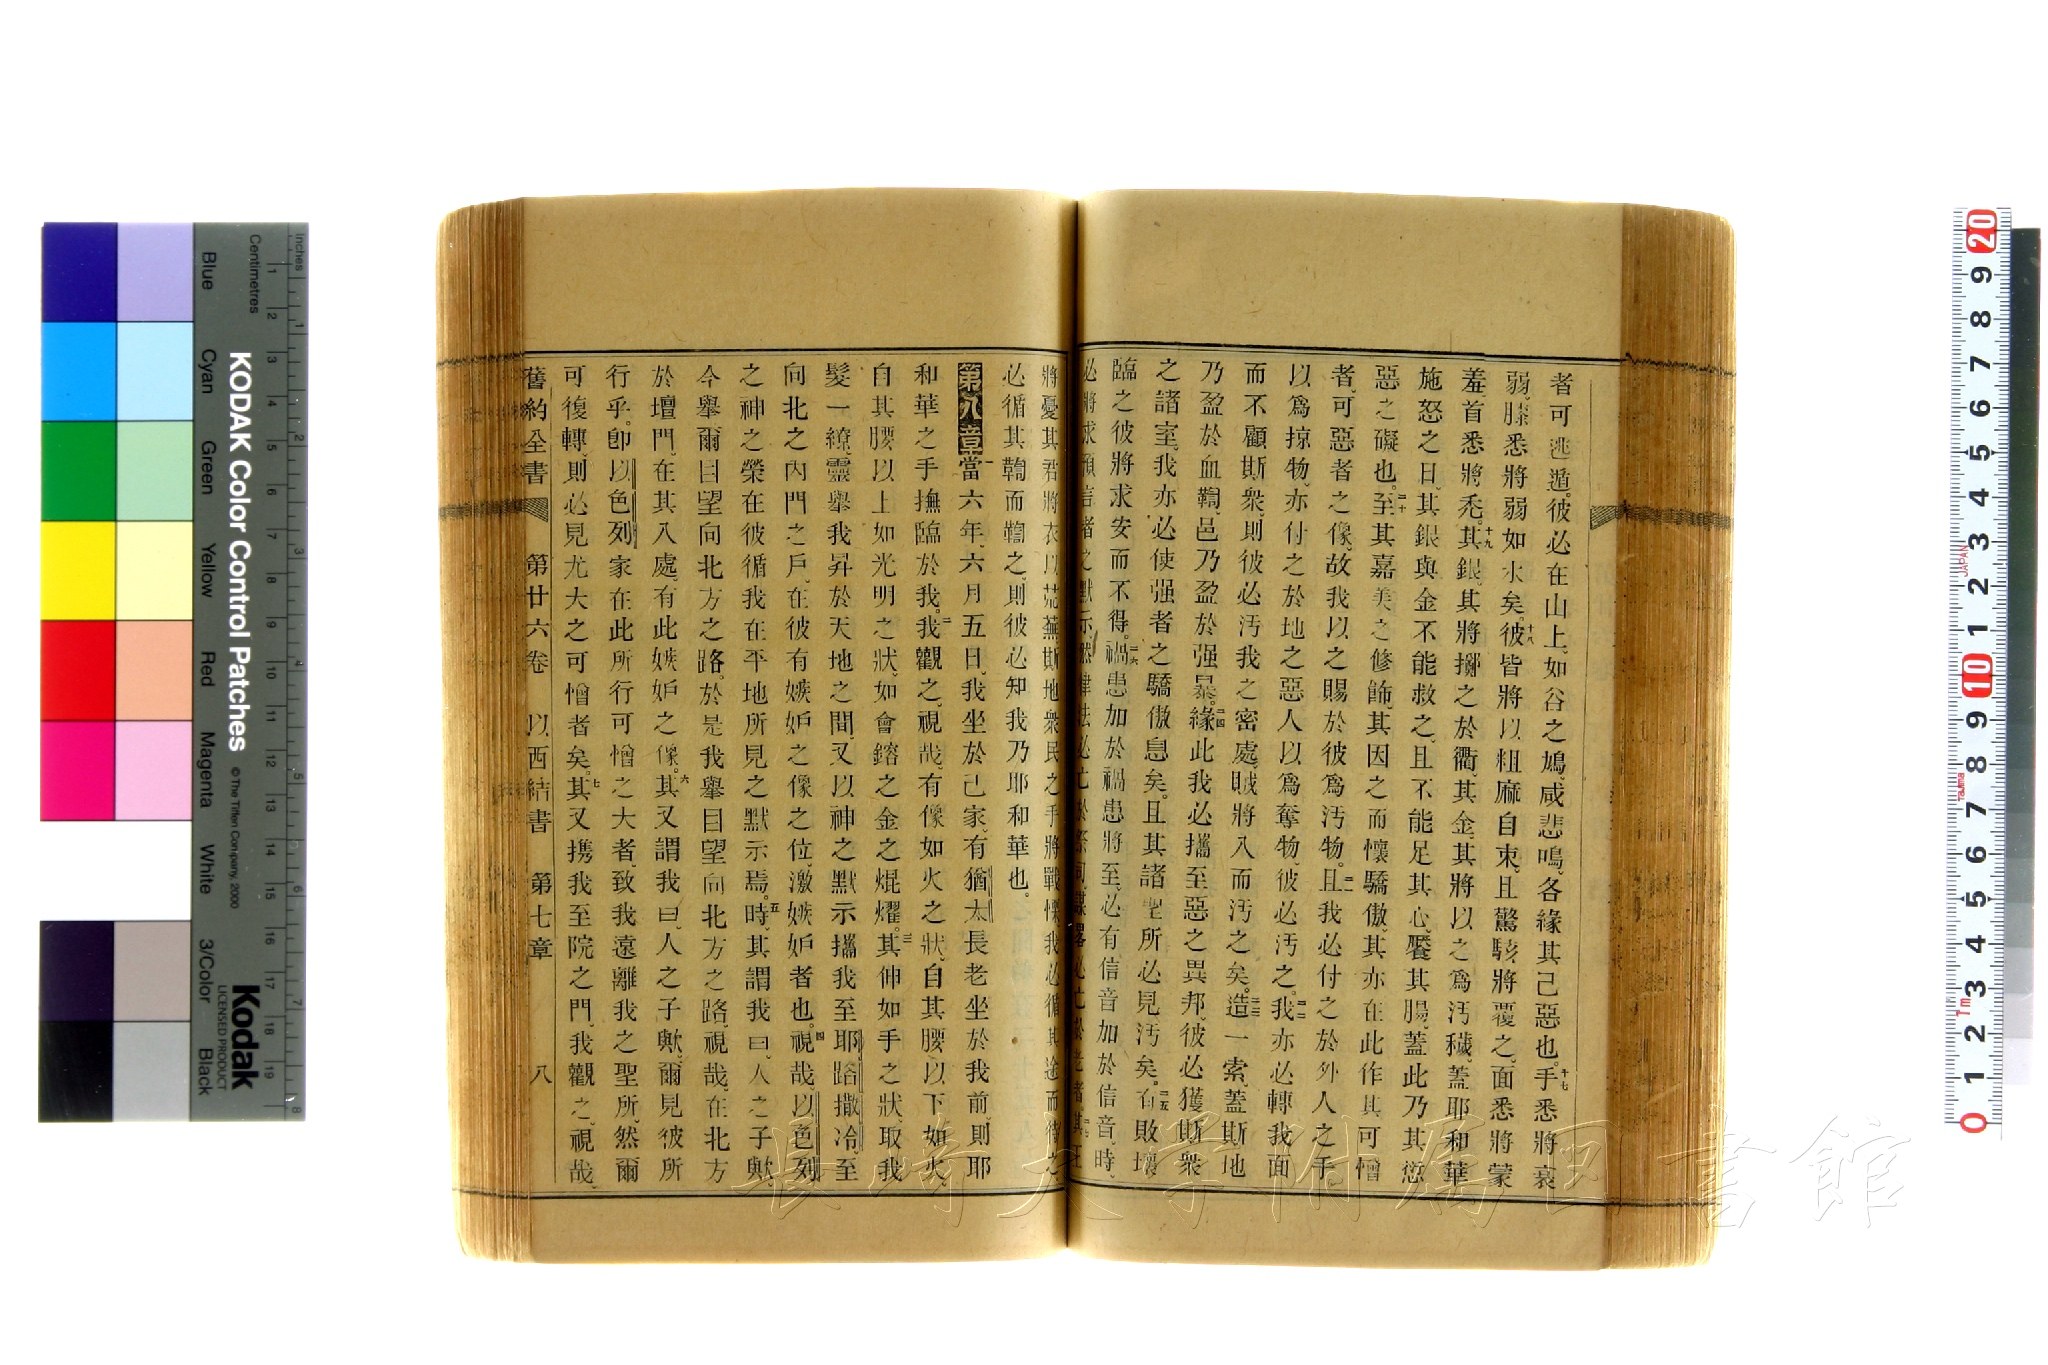 者可逃遁。彼必在山上、如谷之鳩、咸悲鳴、各緣其己惡也。十七手悉將衰
弱、膝悉將弱如水矣。十八彼皆將以粗麻自束、且驚駭將覆之、面悉將蒙
羞、首悉將禿。十九其銀、其將擲之於衢、其金、其將以之爲汚穢、蓋耶和華
施怒之日、其銀與金不能救之、且不能足其心、饜其腸、蓋此乃其愆
惡之礙也。二十至其嘉美之修飾、其因之而懷驕傲、其亦在此作其可憎
者、可惡者之像、故我以之賜於彼爲汚物。二一且我必付之於外人之手
以爲掠物、亦付之於地之惡人以爲奪物、彼必汚之。二二我亦必轉我面
而不顧斯衆、則彼必汚我之密處、賊將入而汚之矣。二三造一索、蓋斯地
乃盈於血鞫、邑乃盈於强暴。二四緣此我必攜至惡之異邦、彼必獲斯衆
之諸室、我亦必使强者之驕傲息矣。且其諸聖所必見汚矣。二五有敗壞
臨之、彼將求安而不得。二六禍患加於禍患將至、必有信音加於信音、時
必將求預言者之默示、然律法必亡於祭司、謀畧必亡於老者。二七其王
將憂、其君將衣以荒蕪、斯地衆民之手將戰慄、我必循其途而待之、
必循其鞫而鞫之、則彼必知我乃耶和華也。
第八章 一當六年、六月五日、我坐於己家、有猶太長老坐於我前、則耶
和華之手撫臨於我。二我觀之、視哉、有像如火之狀、自其腰以下如火、
自其腰以上如光明之狀、如會鎔之金之焜燿。三其伸如手之狀、取我
髮一綹、靈舉我昇於天地之間、又以神之默示攜我至耶路撒冷、至
向北之內門之戶、在彼有嫉妒之像之位、激嫉妒者也。四視哉、以色列
之神之榮在彼、循我在平地所見之默示焉。五時、其謂我曰、人之子歟、
今舉爾目望向北方之路。於是我舉目望向北方之路、視哉、在北方
於壇門、在其入處、有此嫉妒之像。六其又謂我曰、人之子歟、爾見彼所
行乎。卽以色列家在此所行可憎之大者、致我遠離我之聖所、然爾
可復轉、則必見尤大之可憎者矣。七其又携我至院之門、我觀之、視哉、
舊約全書 第廿六卷 以西結書 第七章 八
KODAK Color Control Patches
© The Tiffen Company, 2000
Kodak
LICENSED PRODUCT
Inches
Centimetres
Blue Cyan Green Yellow Red Magenta White 3/Color Black
長崎大学附属図書館